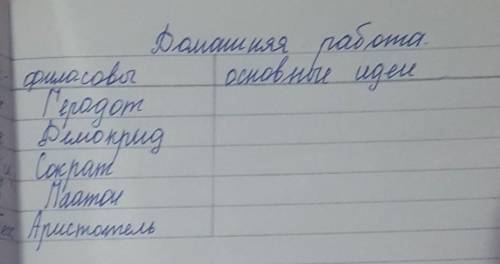 Домашняя работа.
филасовы основные идеи
Герадот
Демокрид
Сократ
Платон
Аристотель